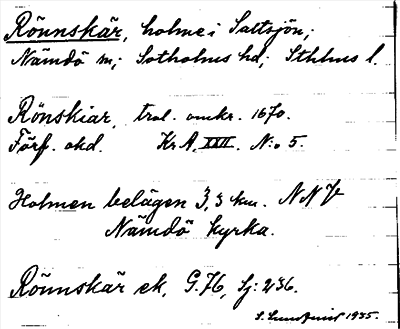 Rönnskär, holme i Saltsjön,
Nämdö sn; Sotholms hd; Sthlms l.
Rönskiar, trol. omkr. 1670.
Förf. okd. Kr A. XXII. N:o 5.
Holmen belägen 3,3 km. NNV
Nämdö kyrka.
Rönnskär ek, G.76, Sj: 236.
1935.